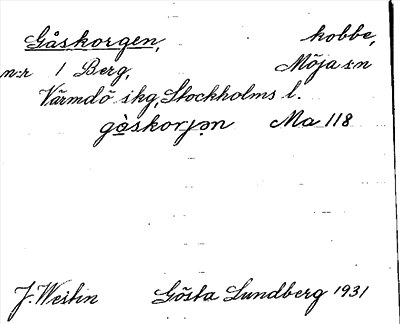 Gåskorgen, kobbe,
n:r 1 Berg, Möja s:n
Värmdö skg, Stockholms l.
gå̀skorjən Ma 118
J. Westin Gösta Lundberg 1931